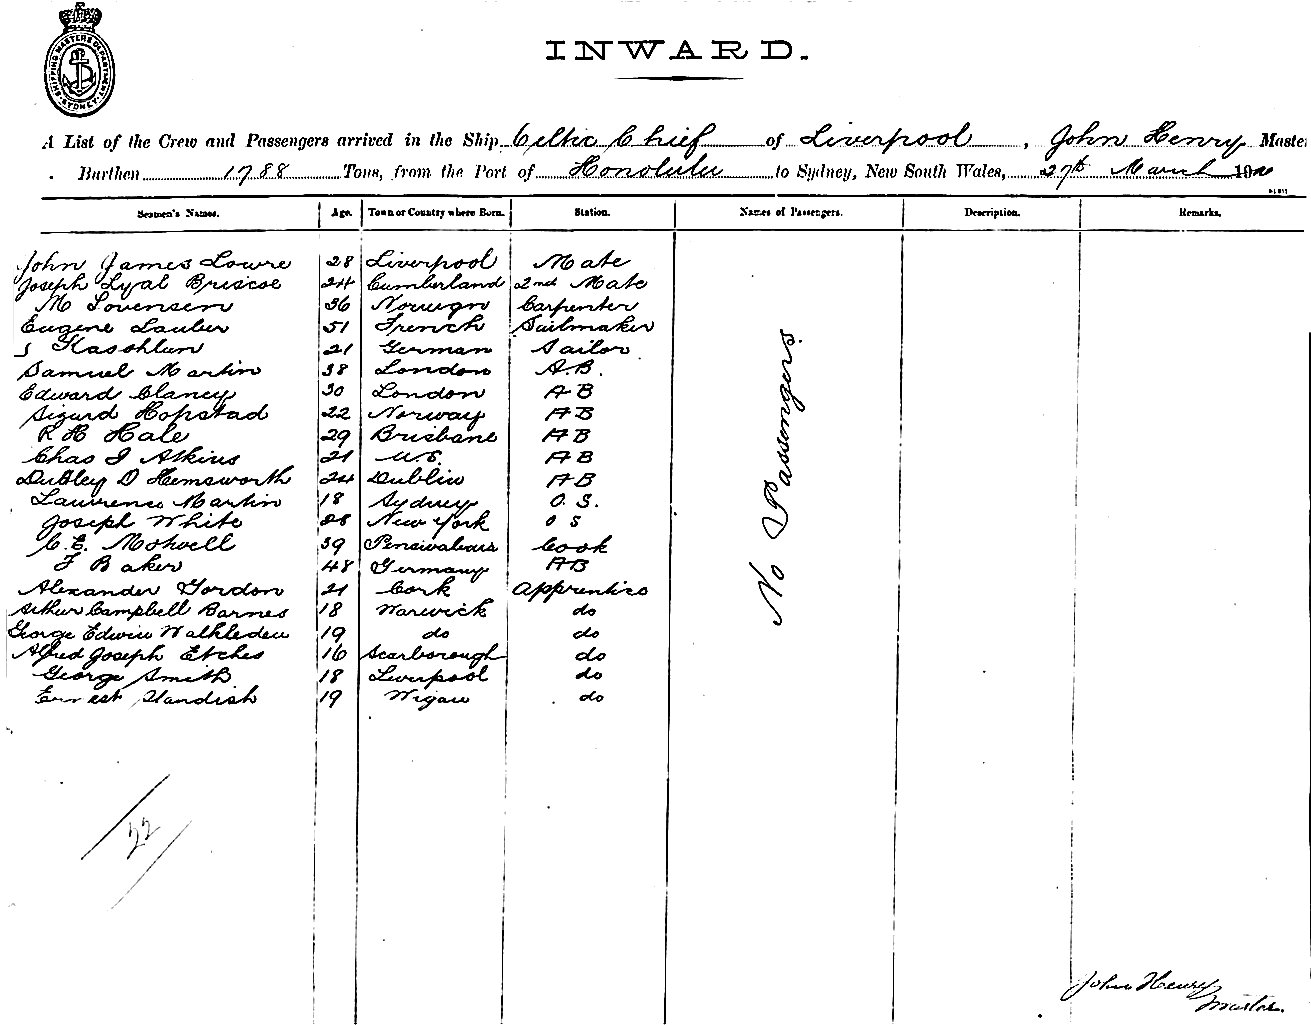 SHIPPING MASTERS DEPARTMENT SYDNEY
INWARD.
A List of the Crew and Passengers arrived in the Ship Celtic Chief of Liverpool, John Henry Master
Burthen 1788 Tons, from the Port of Honolulu to Sydney, New South Wales, 27th March
Seamen's Names. Age. Town or Country where Born. Station. Names of Passengers. Description. Remarks.
John James Lowre 28 Liverpool Mate
Joseph Lyal Briscoe 24 Cumberland 2nd Mate
M Sorensen 36 Carpenter
Eugene Lauber 51 French Sailmaker
21 German Sailor
Samuel Martin 38 London A.B.
Edward Clancy 30 London A B
Sigurd Hopstad 22 Norway A B
R H Hale 29 Brisbane A B
Chas J Atkins 21 U.S. A B
Dudley D Hemsworth 24 Dublin A B
Lawrence Martin 18 Sydney O. S.
Joseph White 28 New York O S
C. E. 39 Cook
F Baker 48 Germany AB
Alexander Gordon 21 Cork Apprentice
Arthur Campbell Barnes 18 Warwick do
George Edwin Walkleden 19 do do
Alfred Joseph Etches 16 Scarborough do
George Smith 18 Liverpool do
Ernest Standish 19 Wigan do
No Passengers
22
John Henry
Master.